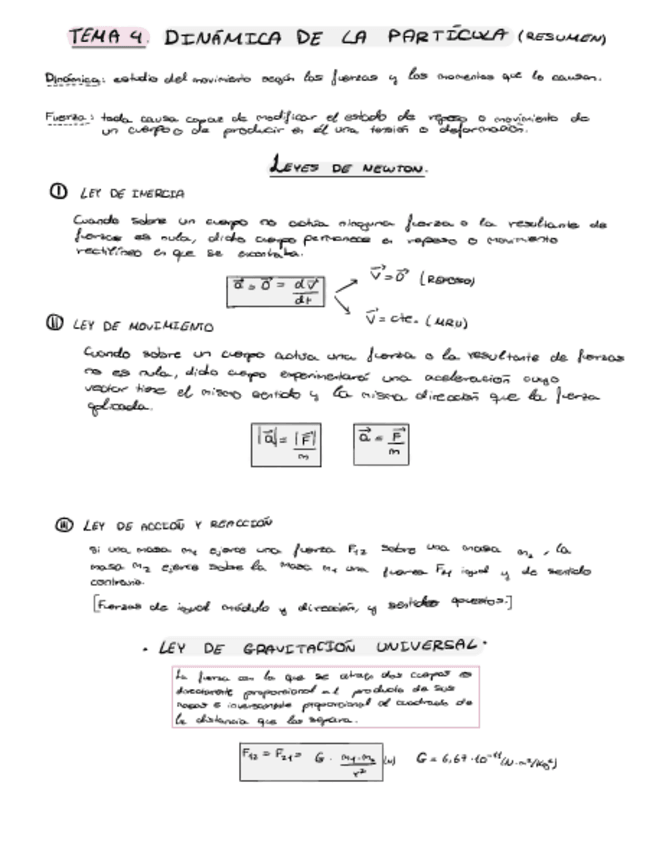 TEMA 4. DINÁMICA DE LA PARTÍCULA (RESUMEN)
Dinámica: estudio del movimiento según las fuerzas y los momentos que lo causan.
Fuerza: toda causa capaz de modificar el estado de reposo o movimiento de
un cuerpo o de producir en él una tensión o deformación.
LEYES DE NEWTON.
Ⓘ LEY DE INERCIA
Cuando sobre un cuerpo no actúa ninguna fuerza o la resultante de
fuerzas es nula, dicho cuerpo permanece en reposo o movimiento
rectilíneo en que se encontraba.
a⃗ = 0⃗ = dv⃗/dt
v⃗ = 0⃗ (REPOSO)
v⃗ = cte. (MRU)
Ⅱ LEY DE MOVIMIENTO
Cuando sobre un cuerpo actúa una fuerza o la resultante de fuerzas
no es nula, dicho cuerpo experimentará una aceleración cuyo
vector tiene el mismo sentido y la misma dirección que la fuerza
aplicada.
|a⃗| = |F⃗|/m a⃗ = F⃗/m
Ⅲ LEY DE ACCIÓN Y REACCIÓN
Si una masa m₁ ejerce una fuerza F₁₂ sobre una masa m₂, la
masa m₂ ejerce sobre la masa m₁ una fuerza F₂₁ igual y de sentido
contrario.
[Fuerzas de igual módulo y dirección, y sentidos opuestos.]
· LEY DE GRAVITACIÓN UNIVERSAL ·
La fuerza con la que se atraen dos cuerpos es
directamente proporcional al producto de sus
masas e inversamente proporcional al cuadrado de
la distancia que los separa.
F₁₂ = F₂₁ = G · m₁·m₂/r² (N) G = 6,67·10⁻¹¹ (N·m²/Kg²)